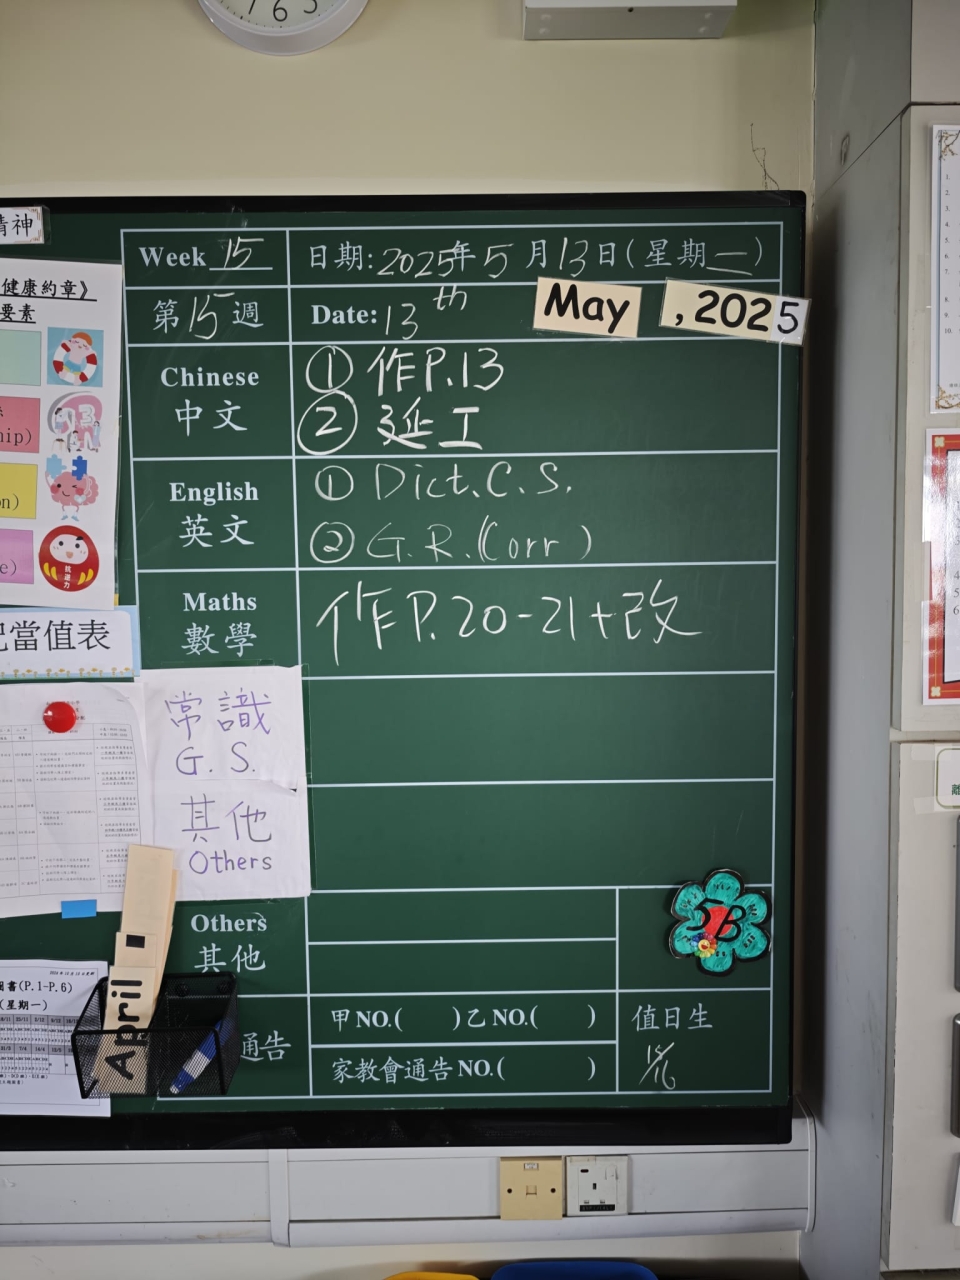 精神
健康約章》
要素
hip)
on)
e)
抗逆力
當值表
Week 15
日期: 2025年 5 月 13 日 ( 星期二 )
第 15 週
Date: 13th May , 2025
Chinese
中文
① 作P.13
② 延工
English
英文
① Dict. C. S.
② G. R. (Corr)
Maths
數學
作P. 20-21+改
常識
G. S.
其他
Others
Others
其他
5B
April
圖書(P.1-P.6)
(星期一)
通告
甲 NO.( ) 乙 NO.( )
家教會通告 NO.( )
值日生
15/16